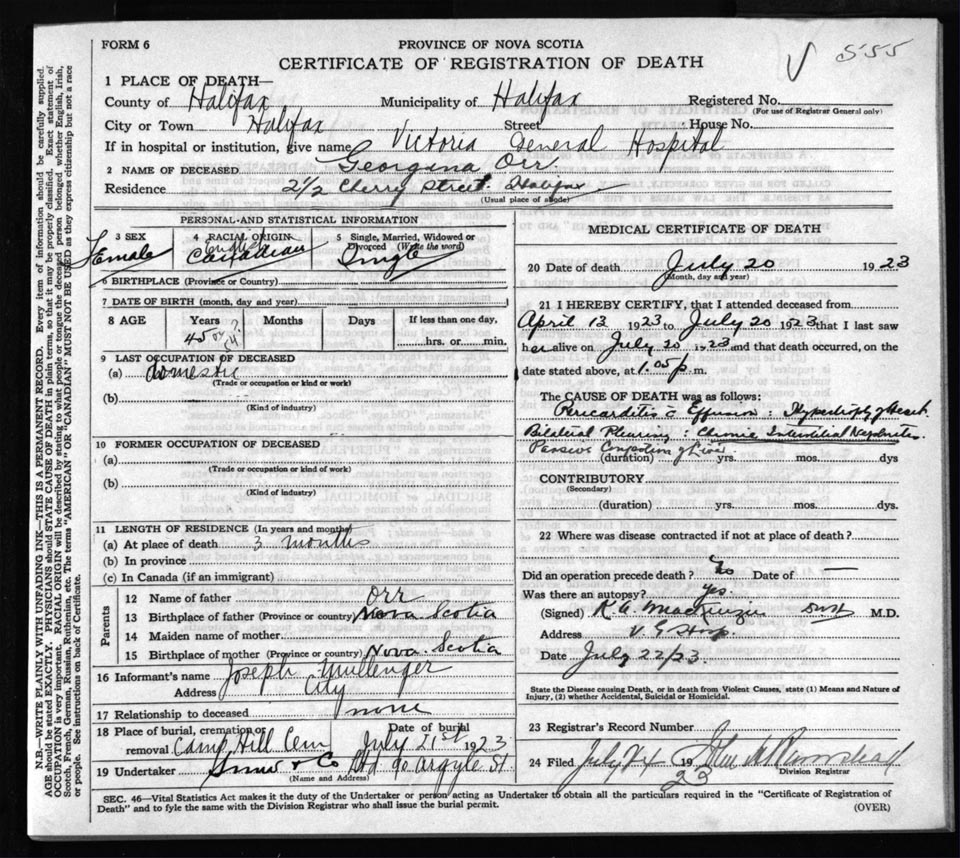 FORM 6
PROVINCE OF NOVA SCOTIA
CERTIFICATE OF REGISTRATION OF DEATH
V 555
1 PLACE OF DEATH—
County of Halifax Municipality of Halifax Registered No.
(For use of Registrar General only)
City or Town Halifax Street House No.
If in hospital or institution, give name Victoria General Hospital
2 NAME OF DECEASED Georgina Orr
Residence 2½ Cherry Street. Halifax
(Usual place of abode)
PERSONAL AND STATISTICAL INFORMATION
3 SEX 4 RACIAL ORIGIN 5 Single, Married, Widowed or Divorced (Write the word)
Female English Canadian Single
6 BIRTHPLACE (Province or Country)
7 DATE OF BIRTH (month, day and year)
8 AGE Years Months Days If less than one day,
45 or 54? hrs. or min.
9 LAST OCCUPATION OF DECEASED
(a) domestic
(Trade or occupation or kind or work)
(b)
(Kind of industry)
10 FORMER OCCUPATION OF DECEASED
(a)
(Trade or occupation or kind of work)
(b)
(Kind of industry)
11 LENGTH OF RESIDENCE (In years and months)
(a) At place of death 3 months
(b) In province
(c) In Canada (if an immigrant)
Parents
12 Name of father Orr
13 Birthplace of father (Province or country) Nova Scotia
14 Maiden name of mother
15 Birthplace of mother (Province or country) Nova Scotia
16 Informant's name Joseph Mullenger
Address City
17 Relationship to deceased none
18 Place of burial, cremation or removal Camp Hill Cem Date of burial July 21st 1923
19 Undertaker Snow & Co Ltd 90 Argyle St
(Name and Address)
MEDICAL CERTIFICATE OF DEATH
20 Date of death July 20 1923
(Month, day and year)
21 I HEREBY CERTIFY, that I attended deceased from
April 13 1923 to July 20 1923 that I last saw
her alive on July 20 1923 and that death occurred, on
date stated above, at 1.05 p. m.
The CAUSE OF DEATH was as follows:
Pericarditis c Effusion : Hypertrophy of Heart.
Bilateral Pleurisy : Chronic Interstitial Nephritis.
Passive Congestion of Liver
(duration) yrs. mos. dys
CONTRIBUTORY
(Secondary)
(duration) yrs. mos. dys.
22 Where was disease contracted if not at place of death?
Did an operation precede death? No Date of —
Was there an autopsy? yes.
(Signed) K.A. MacKenzie M.D.
Address V. G Hosp.
Date July 22/23.
State the Disease causing Death, or in death from Violent Causes, state (1) Means and Nature of
Injury, (2) whether Accidental, Suicidal or Homicidal.
23 Registrar's Record Number
24 Filed July 24 1923
Division Registrar
SEC. 46—Vital Statistics Act makes it the duty of the Undertaker or person acting as Undertaker to obtain all the particulars required in the "Certificate of Registration of
Death" and to fyle the same with the Division Registrar who shall issue the burial permit.
(OVER)
N.B.—WRITE PLAINLY WITH UNFADING INK—THIS IS A PERMANENT RECORD. Every item of information should be carefully supplied.
AGE should be stated EXACTLY. PHYSICIANS should STATE CAUSE OF DEATH in plain terms, so that it may be properly classified. Exact statement of
OCCUPATION is very important. RACIAL ORIGIN will be described by stating to what people or tongue the deceased person belonged whether English, Irish,
Scotch, French, German, Russian, Ruthenian, etc. The terms "AMERICAN" OR "CANADIAN" MUST NOT BE USED as they express citizenship but not a race
or people. See instructions on back of Certificate.